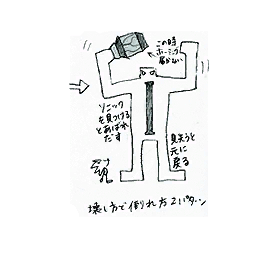 この時
ホーミング
届かない
ソニック
を見つける
とあばれ
だす
見失うと
元に
戻る
壊し方で倒れ方2パターン